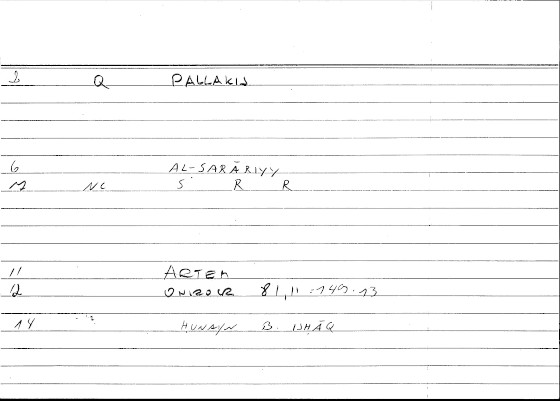 1 Q PALLAKIS
6 AL-SARĀRIYY
12 NC S R R
11 ARTEM
12 ONIROCR 81,11 = 149.13
14 HUNAYN B. ISHĀQ